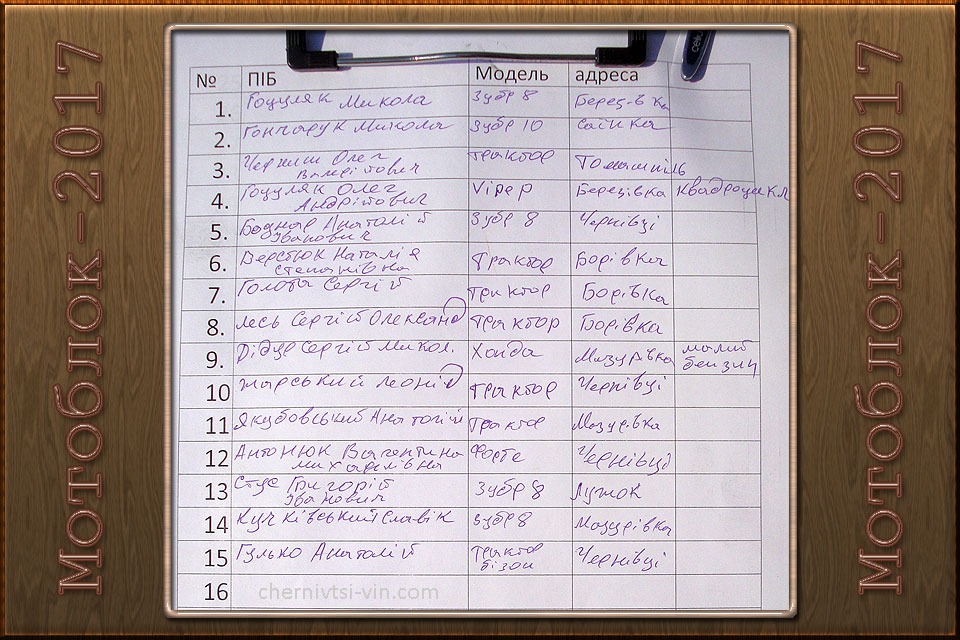 Мотоблок-2017
№ ПІБ Модель адреса
1. Гоцуляк Микола Зубр 8 Березівка
2. Гончарук Микола Зубр 10 Саїнка
3. Черниш Олег Валерійович трактор Томашпіль
4. Гоцуляк Олег Андрійович Viper Березівка квадроцикл
5. Боднар Анатолій Іванович Зубр 8 Чернівці
6. Верстюк Наталія Степанівна Трактор Борівка
7. Голота Сергій Трактор Борівка
8. Лесь Сергій Олексан Трактор Борівка
9. Дідур Сергій Микол. Хонда Мазурівка малий бензин
10 Жарський Леонід Трактор Чернівці
11 Якубовський Анатолій Трактор Мазурівка
12 Антонюк Валентина Михайлівна Форте Чернівці
13 Стус Григорій Іванович Зубр 8 Лужок
14 Кучківський Славік Зубр 8 Мазурівка
15 Гулько Анатолій трактор бізон Чернівці
16
chernivtsi-vin.com
Мотоблок-2017